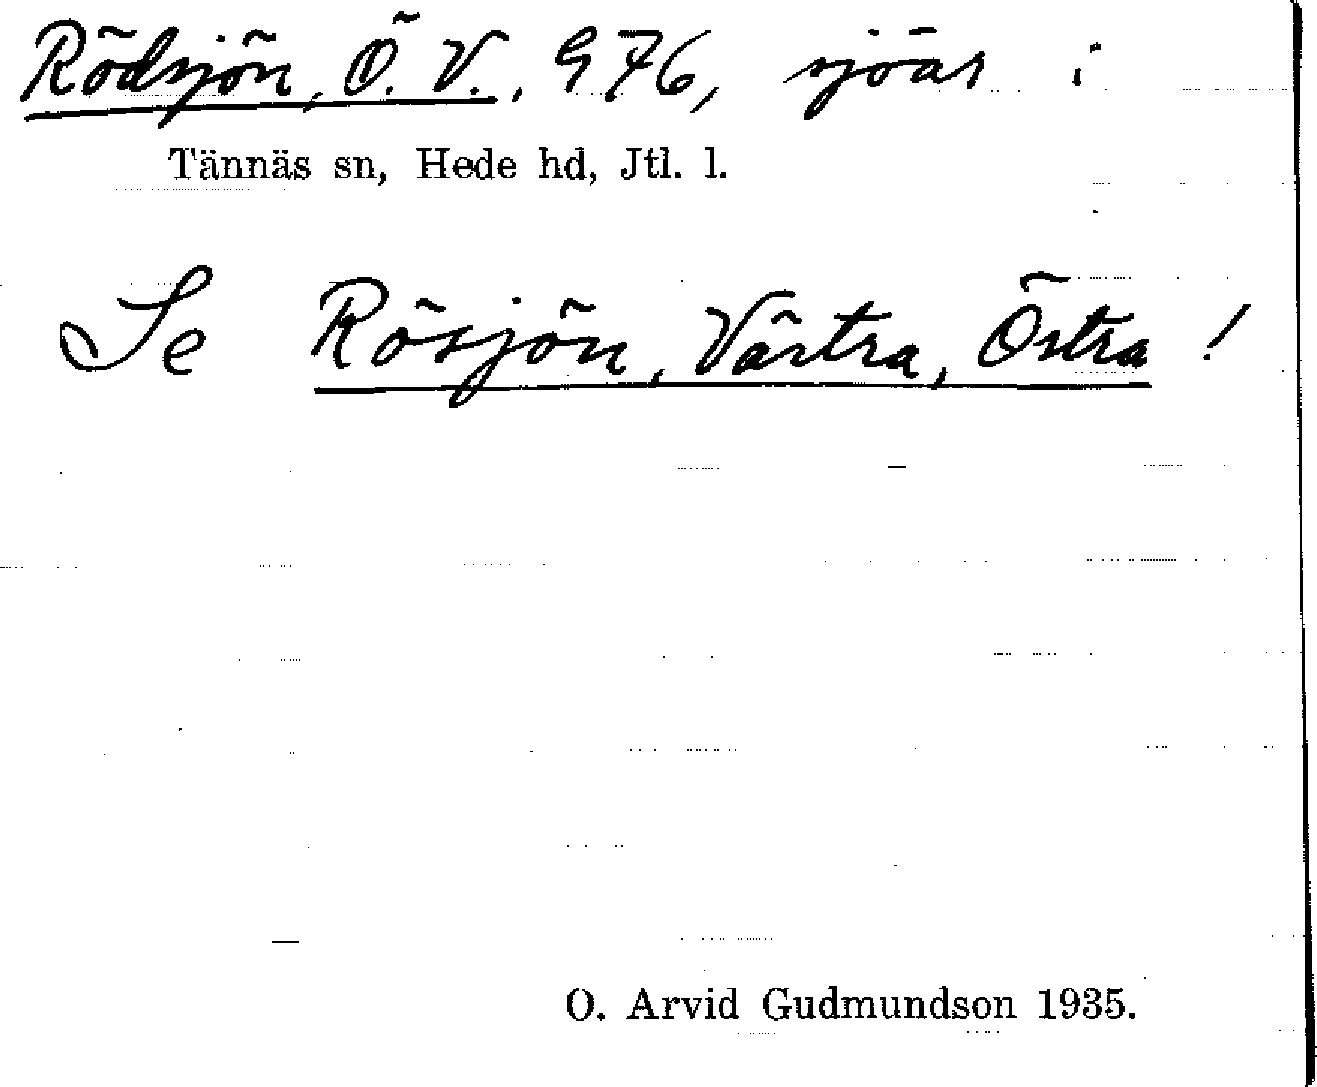 Rödsjön, Ö. V., 976, sjöar i
Tännäs sn, Hede hd, Jtl. l.
Se Rösjön, Västra, Östra !
O. Arvid Gudmundson 1935.